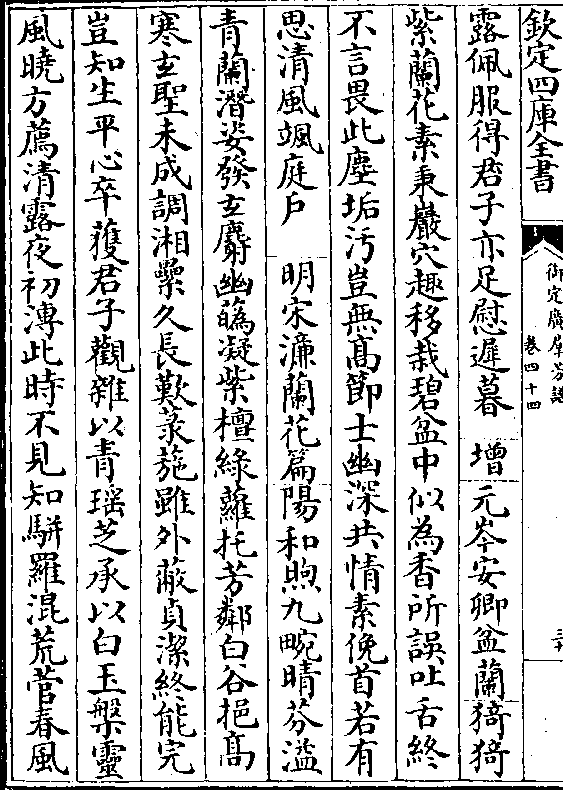 欽定四庫全書
御定廣羣芳譜
卷四十四
三十
露佩服得君子亦足慰遲暮　增　元岑安卿盆蘭猗猗
紫蘭花素秉巖穴趣移栽碧盆中似為香所誤吐舌終
不言畏此塵垢汚豈無髙節士幽深共情素俛首若有
思清風颯庭戶　明宋濂蘭花篇陽和煦九畹晴芬溢
青蘭潛姿發玄麝幽蘤凝紫檀綠蘿托芳鄰白谷挹髙
寒玄聖未成調湘纍久長歎菉葹雖外蔽貞潔終能完
豈知生平心卒獲君子觀雜以青瑶芝承以白玉槃靈
風曉方薦清露夜初漙此時不見知駢羅混荒菅春風